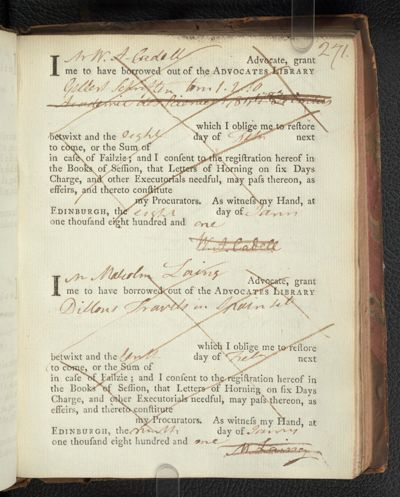 271.
I Mr W. A. Cadell Advocate, grant
me to have borrowed out of the ADVOCATES LIBRARY
Gellert Schriften tom 1. 2.
which I oblige me to reſtore
betwixt and the eight day of Feb next
to come, or the Sum of
in caſe of Failzie; and I conſent to the regiſtration hereof in
the Books of Seſſion, that Letters of Horning on ſix Days
Charge, and other Executorials needful, may paſs thereon, as
effeirs, and thereto conſtitute
my Procurators. As witneſs my Hand, at
EDINBURGH, the eight day of Janry
one thouſand eight hundred and one
W. A. Cadell
I Mr Malcolm Laing Advocate, grant
me to have borrowed out of the ADVOCATES LIBRARY
Dillons Travels in Spain
which I oblige me to reſtore
betwixt and the tenth day of Feb next
to come, or the Sum of
in caſe of Failzie; and I conſent to the regiſtration hereof in
the Books of Seſſion, that Letters of Horning on ſix Days
Charge, and other Executorials needful, may paſs thereon, as
effeirs, and thereto conſtitute
my Procurators. As witneſs my Hand, at
EDINBURGH, the ninth day of Janry
one thouſand eight hundred and one